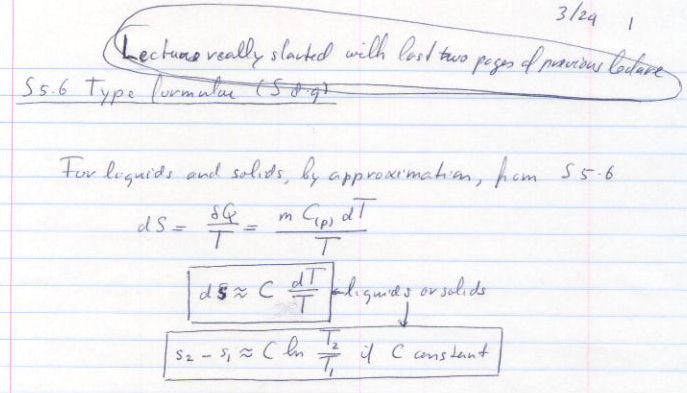 3/29 1
Lecture really started with last two pages of previous lecture
S5.6 Type formulae (S
For liquids and solids, by approximation, from S5.6
dS = δQ/T = m C(p) dT / T
ds ≈ C dT/T ← liquids or solids
s₂ - s₁ ≈ C ln T₂/T₁ if C constant